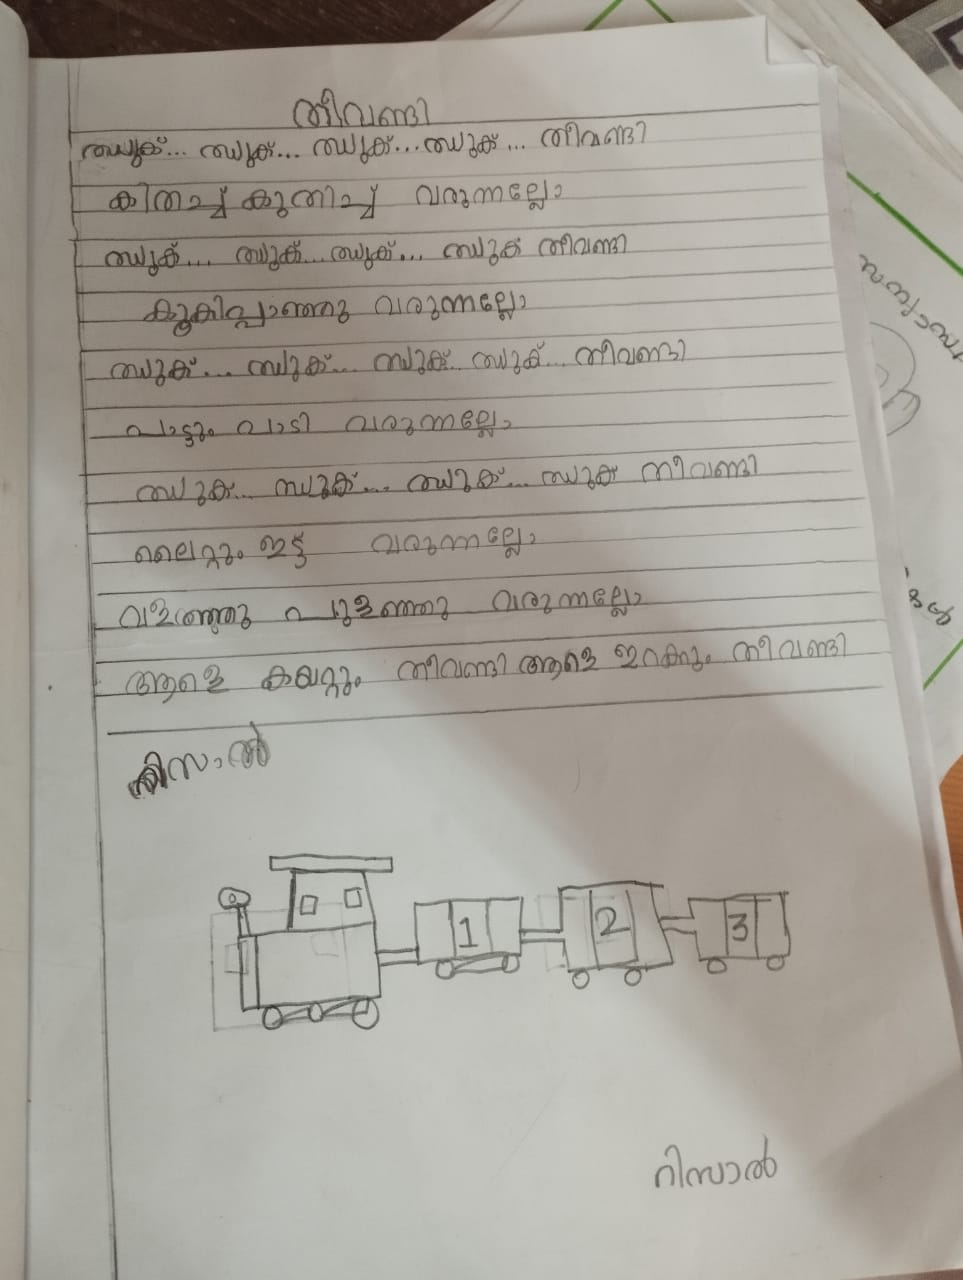 തീവണ്ടി
ഝുക്... ഝുക്... ഝുക്... ഝുക്... തീവണ്ടി
കിതച്ച് കുതിച്ച് വരുന്നല്ലോ
ഝുക്... ഝുക്... ഝുക്... ഝുക് തീവണ്ടി
കൂകിപ്പാഞ്ഞു വരുന്നല്ലോ
ഝുക്... ഝുക്... ഝുക്... ഝുക്... തീവണ്ടി
പാട്ടും പാടി വരുന്നല്ലോ
ഝുക്... ഝുക്... ഝുക്... ഝുക് തീവണ്ടി
ലൈറ്റും ഇട്ട് വരുന്നല്ലോ
വളഞ്ഞു പുളഞ്ഞു വരുന്നല്ലോ
ആളെ കയറ്റും തീവണ്ടി ആളെ ഇറക്കും തീവണ്ടി
റിസാൽ
1 2 3
റിസാൽ